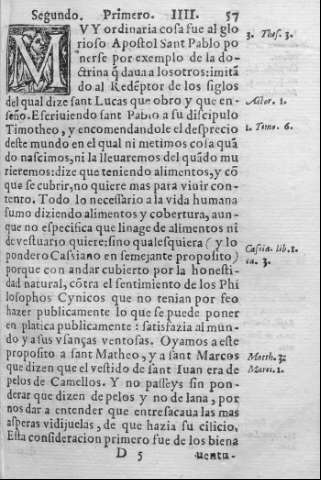 Segundo. Primero. IIII. 57
MVY ordinaria cosa fue al glo
rioso Apostol Sant Pablo po
nerse por exemplo de la do-
ctrina q̃ daua a los otros: imitã
do al Redẽptor de los siglos
del qual dize sant Lucas que obro y que en-
seño. Escriuiendo sant Pablo a su discipulo
Timotheo, y encomendandole el desprecio
deste mundo en el qual ni metimos cosa quã
do nascimos, ni la lleuaremos del quãdo mu
rieremos: dize que teniendo alimentos, y cõ
que se cubrir, no quiere mas para viuir con-
tento. Todo lo necessario a la vida humana
sumo diziendo alimentos y cobertura, aun-
que no especifica que linage de alimentos ni
de vestuario quiere: sino qualesquiera (y lo
pondero Cassiano en semejante proposito)
porque con andar cubierto por la honesti-
dad natural, cõtra el sentimiento de los Phi
losophos Cynicos que no tenian por feo
hazer publicamente lo que se puede poner
en platica publicamente: satisfazia al mun-
do y a sus vsanças ventosas. Oyamos a este
proposito a sant Matheo, y a sant Marcos
que dizen que el vestido de sant Iuan era de
pelos de Camellos. Y no passeys sin pon-
derar que dizen de pelos y no de lana, por
nos dar a entender que entresacaua las mas
asperas vidijuelas, de que hazia su cilicio.
Esta consideracion primero fue de los biena
D 5 uentu-
3. Thes. 3.
Actor. 1.
1. Timo. 6.
Cassia. lib. 1.
ca. 3.
Matth. 3.
Marci. 1.